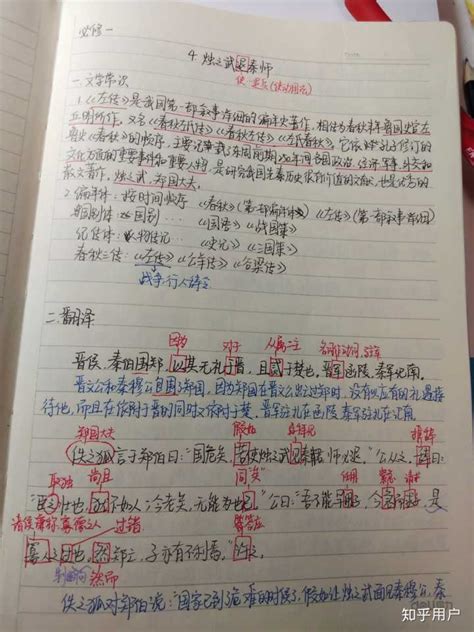 必修一
4. 烛之武退秦师
使…退兵(使动用法)
一.文学常识
1.《左传》是我国第一部叙事详细的编年史著作,相传为春秋末年鲁国史官左
丘明所作。又名《春秋左氏传》《左氏春秋》。它依
《春秋》的顺序,主要记载了东周前期
文化方面的重要事件和重要人物,是研究我国先秦历史很有价值的文献,也是优秀的
散文著作。烛之武,郑国大夫。
2.编年体:按时间顺序 《春秋》(第一部编年体) 《左传》(第一部叙事详细)
国别体:以国别… 《国语》《战国策》
纪传体:人物传记… 《史记》《三国志》
春秋三传:《左传》《公羊传》《谷梁传》
战争,行人辞令
二.翻译
因为 对于 从属二主
晋侯、秦伯围郑,以其无礼于晋,且贰于楚也。晋军函陵,秦军氾南。
晋文公和秦穆公包围了郑国,因为郑国在晋文公出亡过郑时,没有以应有的礼遇接
待他,而且在依附于晋的同时又依附于楚。晋军驻扎在函陵,秦军驻扎在氾南
郑国大夫 假如
佚之狐言于郑伯曰:“国危矣,若使烛之武见秦君,师必退。”公从之。辞曰:
尚且 同“矣”
“臣之壮也,犹不如人;今老矣,无能为也已。”公曰:“吾不能早用子,今急而求子,是
过错 答应
寡人之过也。然郑亡,子亦有不利焉。”许之。
然而
佚之狐对郑伯说:“国家已到了危难的时候了,假如让烛之武面见秦穆公,秦
知乎用户